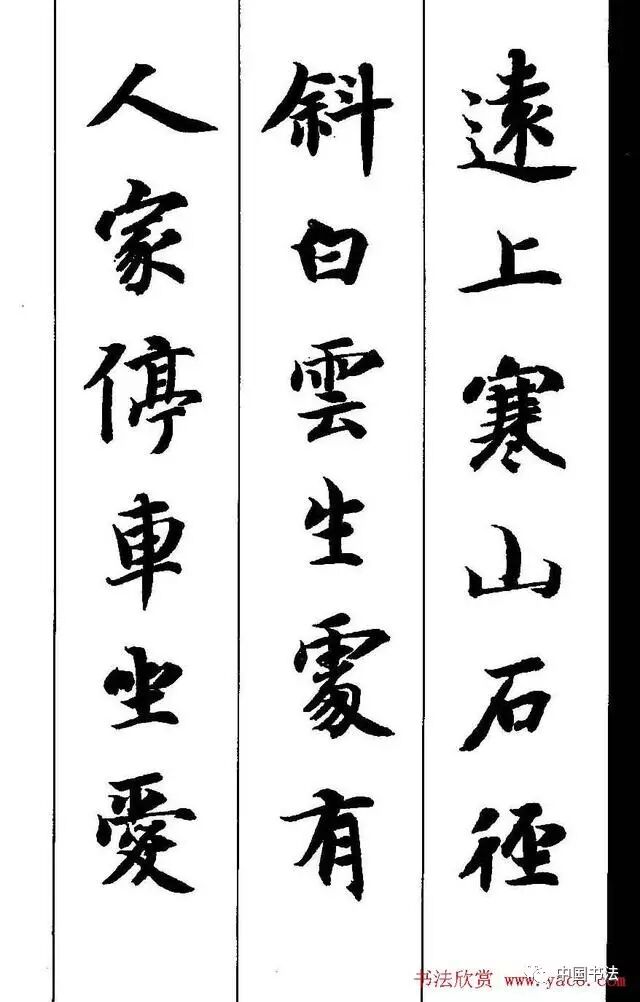 遠上寒山石徑
斜白雲生處有
人家停車坐愛
书法欣赏 www.yac8.com
中国书法